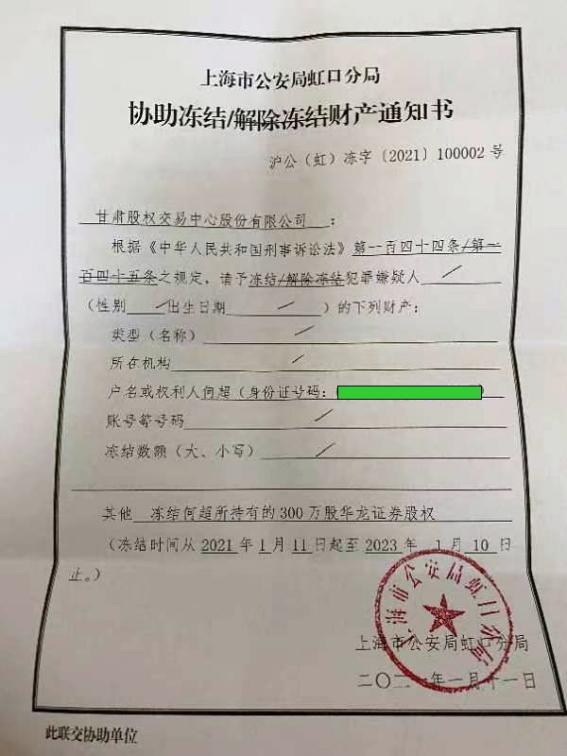 上海市公安局虹口分局
协助冻结/解除冻结财产通知书
沪公（虹）冻字〔2021〕100002号
甘肃股权交易中心股份有限公司：
根据《中华人民共和国刑事诉讼法》第一百四十四条/第一
百四十五条之规定，请予冻结/解除冻结犯罪嫌疑人 /
（性别 / 出生日期 / ）的下列财产：
类型（名称） /
所在机构 /
户名或权利人何超（身份证号码： ）
账号等号码 /
冻结数额（大、小写） /
其他 冻结何超所持有的300万股华龙证券股权
（冻结时间从2021年1月11日起至2023年1月10日
止。）
上海市公安局虹口分局
上海市公安局虹口分局
二〇二一年一月十一日
此联交协助单位